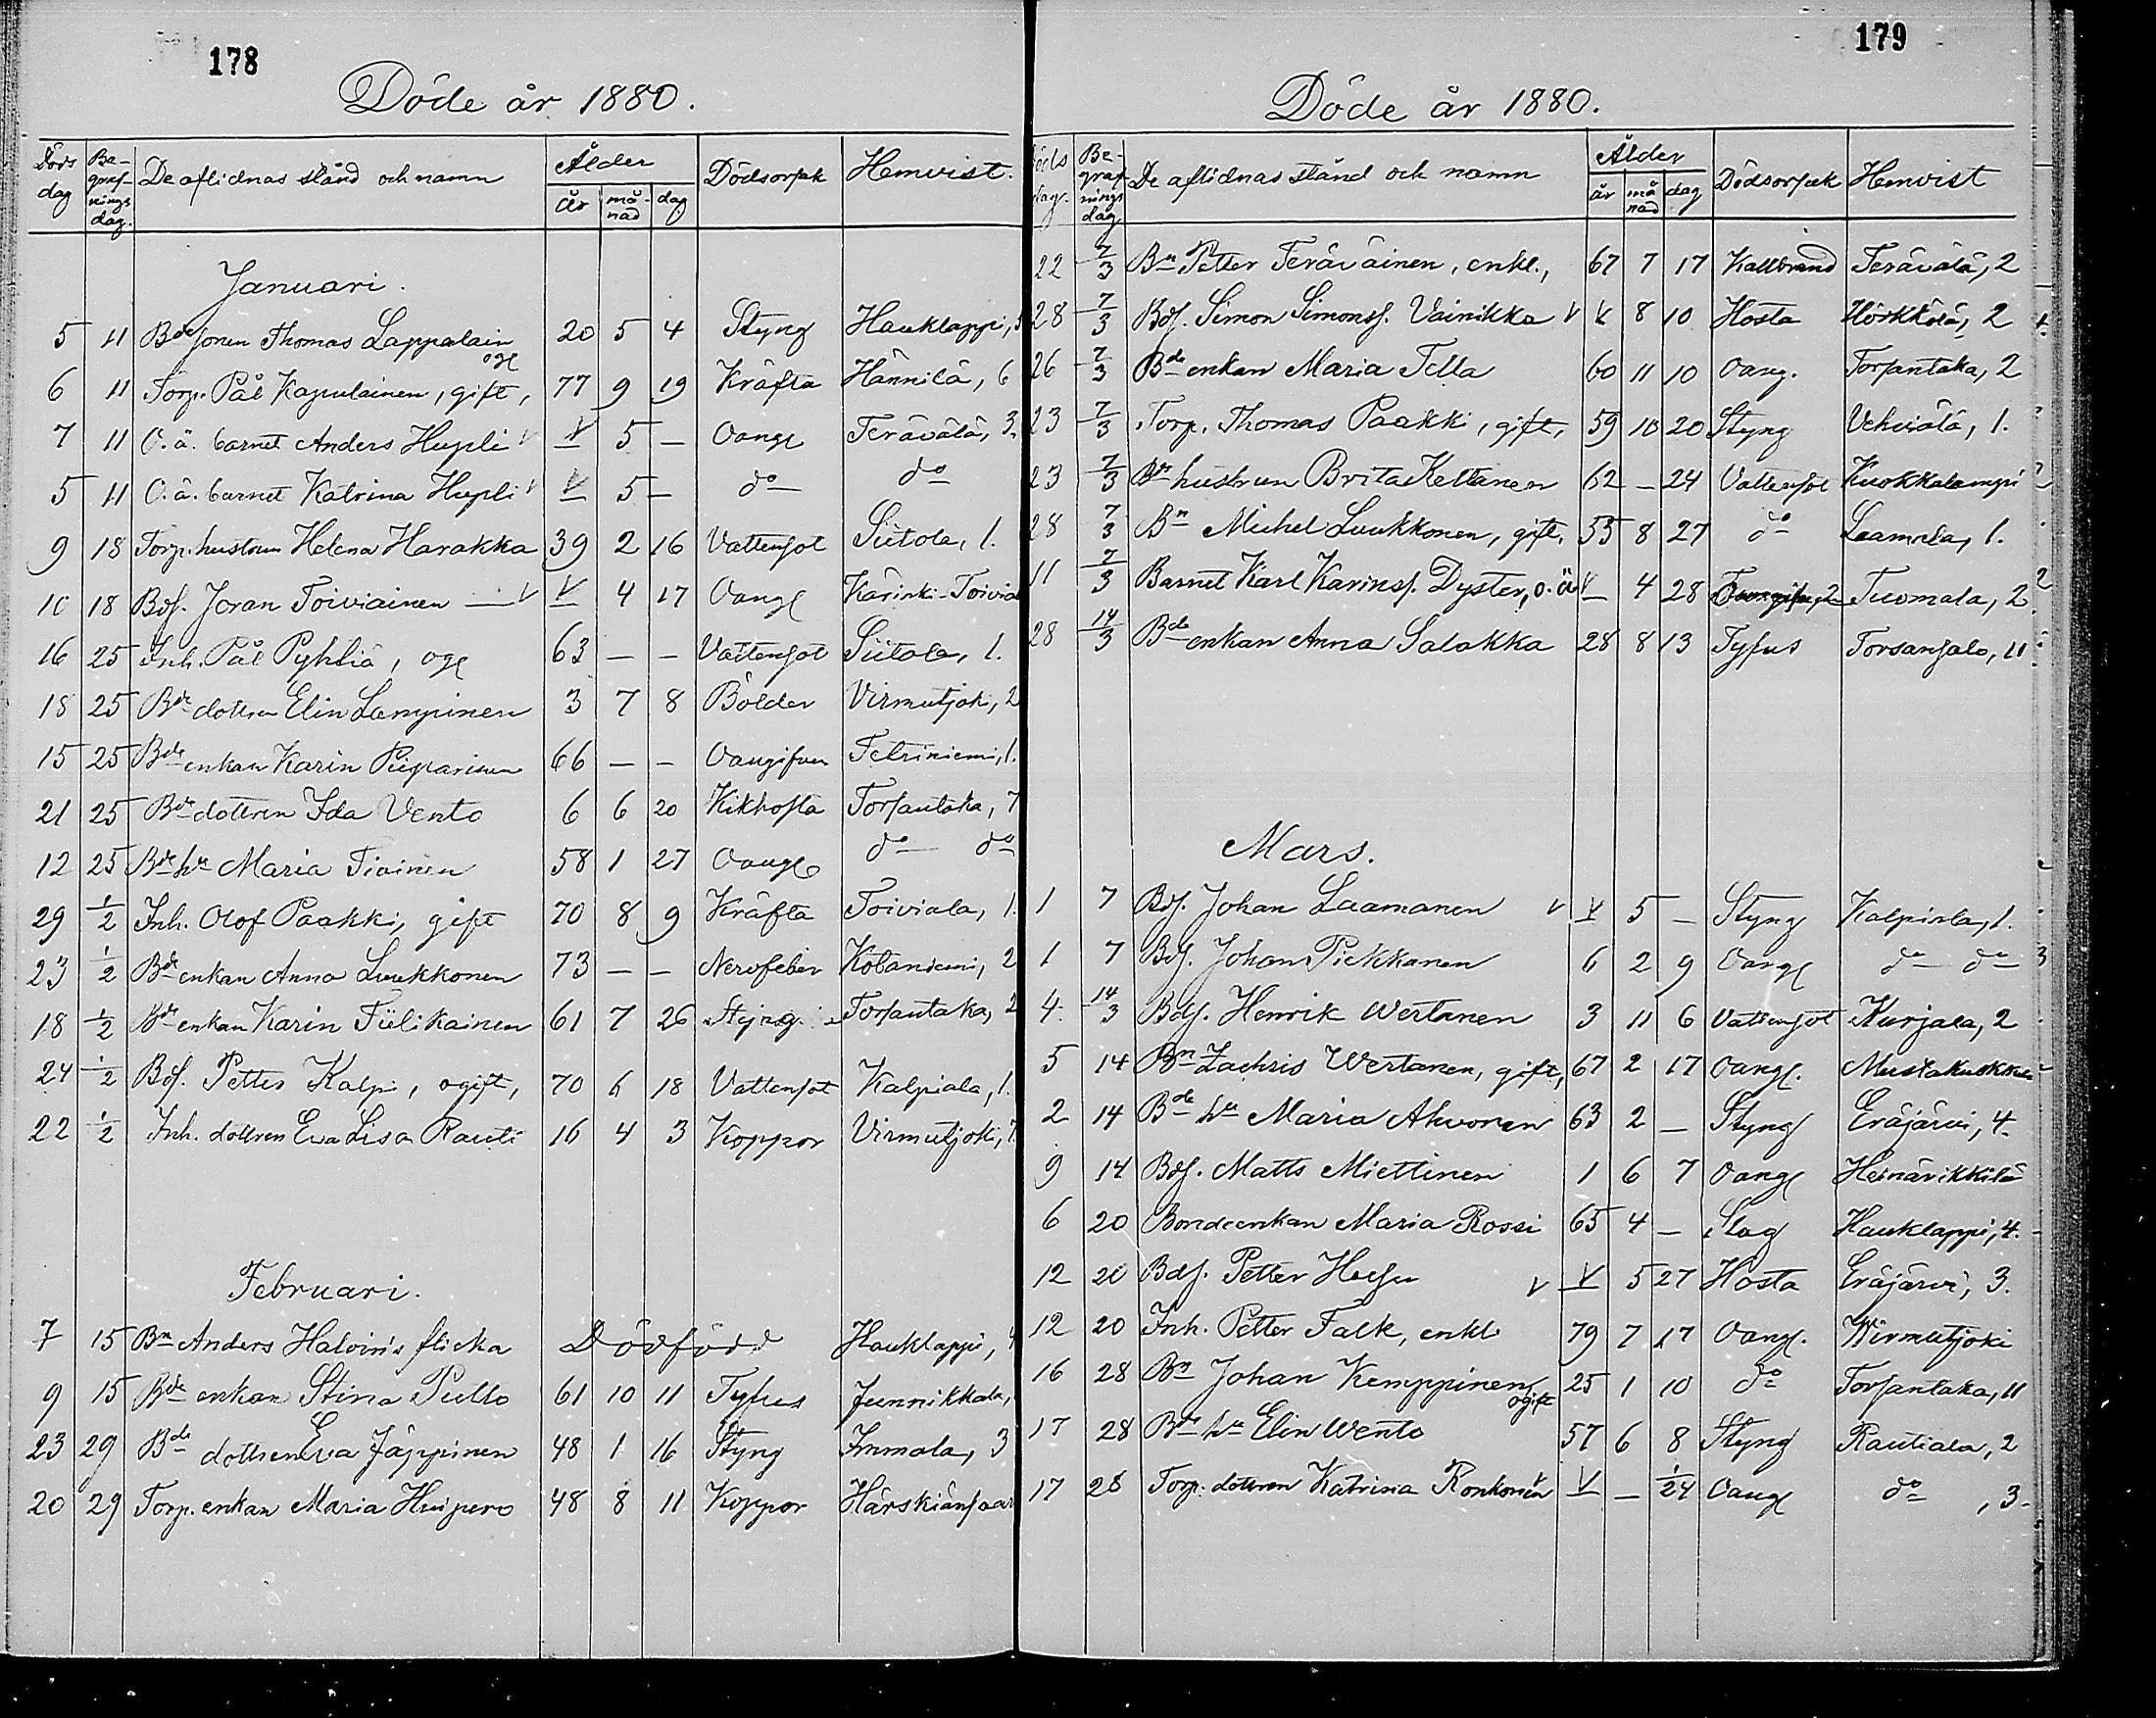 178
Döde år 1880.
Döds dag | Be-graf-nings dag. | De aflidnas stånd och namn | Ålder år | må-nad | dag | Dödsorsak | Hemvist.
Januari.
5 11 Bdesonen Thomas Lappalain ogf 20 5 4 Styng Hauklappi, 5
6 11 Torp. Pål Kapulainen, gift, 77 9 19 Kräfta Hännilä, 6
7 11 O. ä. barnet Anders Hupli v V 5 — Oangf Terävälä, 3.
5 11 O. ä. barnet Katrina Hupli v V 5 — do do
9 18 Torp. hustrun Helena Harakka 39 2 16 Vattensot Siitola, 1.
10 18 Bds. Joran Toiviainen — v V 4 17 Oangf Kärinki-Toivial
16 25 Inh. Pål Pyhliä, ogf 63 — — Vattensot Siitola, 1.
18 25 Bde dottren Elin Lampinen 3 7 8 Bölder Virmutjoki, 2
15 25 Bde enkan Karin Pieparinen 66 — — Oangifven Tetriniemi, 1.
21 25 Bde dottren Ida Vento 6 6 20 Kikhosta Torsantaka, 7
12 25 Bde hu Maria Tiainen 58 1 27 Oangf do do
29 1/2 Inh. Olof Paakki, gift 70 8 9 Kräfta Toiviala, 1.
23 1/2 Bde enkan Anna Luukkonen 73 — — Nervfeber Kotaniemi, 2
18 1/2 Bde enkan Karin Tiilikainen 61 7 26 Styng Torsantaka, 2
24 1/2 Bds. Petter Kalpi, ogift, 70 6 18 Vattensot Kalpiala, 1.
22 1/2 Inh. dottren Eva Lisa Rauti 16 4 3 Koppor Virmutjoki, 7.
Februari.
7 15 Bn Anders Halvin's flicka Dödfödd Hauklappi, 4
9 15 Bde enkan Stina Pullo 61 10 11 Tyfus Junnikkala,
23 29 Bde dottren Eva Jäppinen 48 1 16 Styng Immala, 3
20 29 Torp. enkan Maria Huipero 48 8 11 Koppor Härskiänsaar
179
Döde år 1880.
öds dag. | Be-graf-nings dag | De aflidnas stånd och namn | Ålder år | må nad | dag | Dödsorsak | Hemvist
22 7/3 Bn Petter Teräväinen, enkl., 67 7 17 Kallbrand Terävälä, 2
28 7/3 Bds. Simon Simonss. Vainikka v V 8 10 Hosta Hörkkölä, 2
26 7/3 Bde enkan Maria Tella 60 11 10 Oang. Torsantaka, 2
23 7/3 Torp. Thomas Paakki, gift, 59 10 20 Styng Vehviälä, 1.
23 7/3 Bde hustrun Brita Kettanen 62 — 24 Vattensot Kuokkalampi
28 7/3 Bn Michel Luukkonen, gift. 55 8 27 do Laamala, 1.
11 7/3 Barnet Karl Karinss. Dyster, o. ä. V — 4 28 Tuomala, 2
28 14/3 Bde enkan Anna Salakka 28 8 13 Tyfus Torsansalo, 11
Mars.
1 7 Bds. Johan Laamanen v V 5 — Styng Kalpiala, 1.
1 7 Bds. Johan Piekkanen 6 2 9 Oangf do do
4. 14/3 Bds. Henrik Wertanen 3 11 6 Vattensot Kurjala, 2
5 14 Bn Zachris Wertanen, gift, 67 2 17 Oangf. Mustakukkula
2 14 Bde hu Maria Ahvonen 63 2 — Styng Eräjärvi, 4.
9 14 Bds. Matts Miettinen 1 6 7 Oangf Heinärikkilä
6 20 Bondeenkan Maria Rossi 65 4 — Slag Hauklappi, 4.
12 20 Bds. Petter Husu v V 5 27 Hosta Eräjärvi, 3.
12 20 Inh. Petter Falk, enkl. 79 7 17 Oangf. Wirmutjoki
16 28 Bn Johan Kemppinen ogift 25 1 10 do Torsantaka, 11
17 28 Bde hu Elin Wento 57 6 8 Styng Rautiala, 2
17 28 Torp. dottren Katrina Ronkonen V — 1/24 Oangf do, 3.